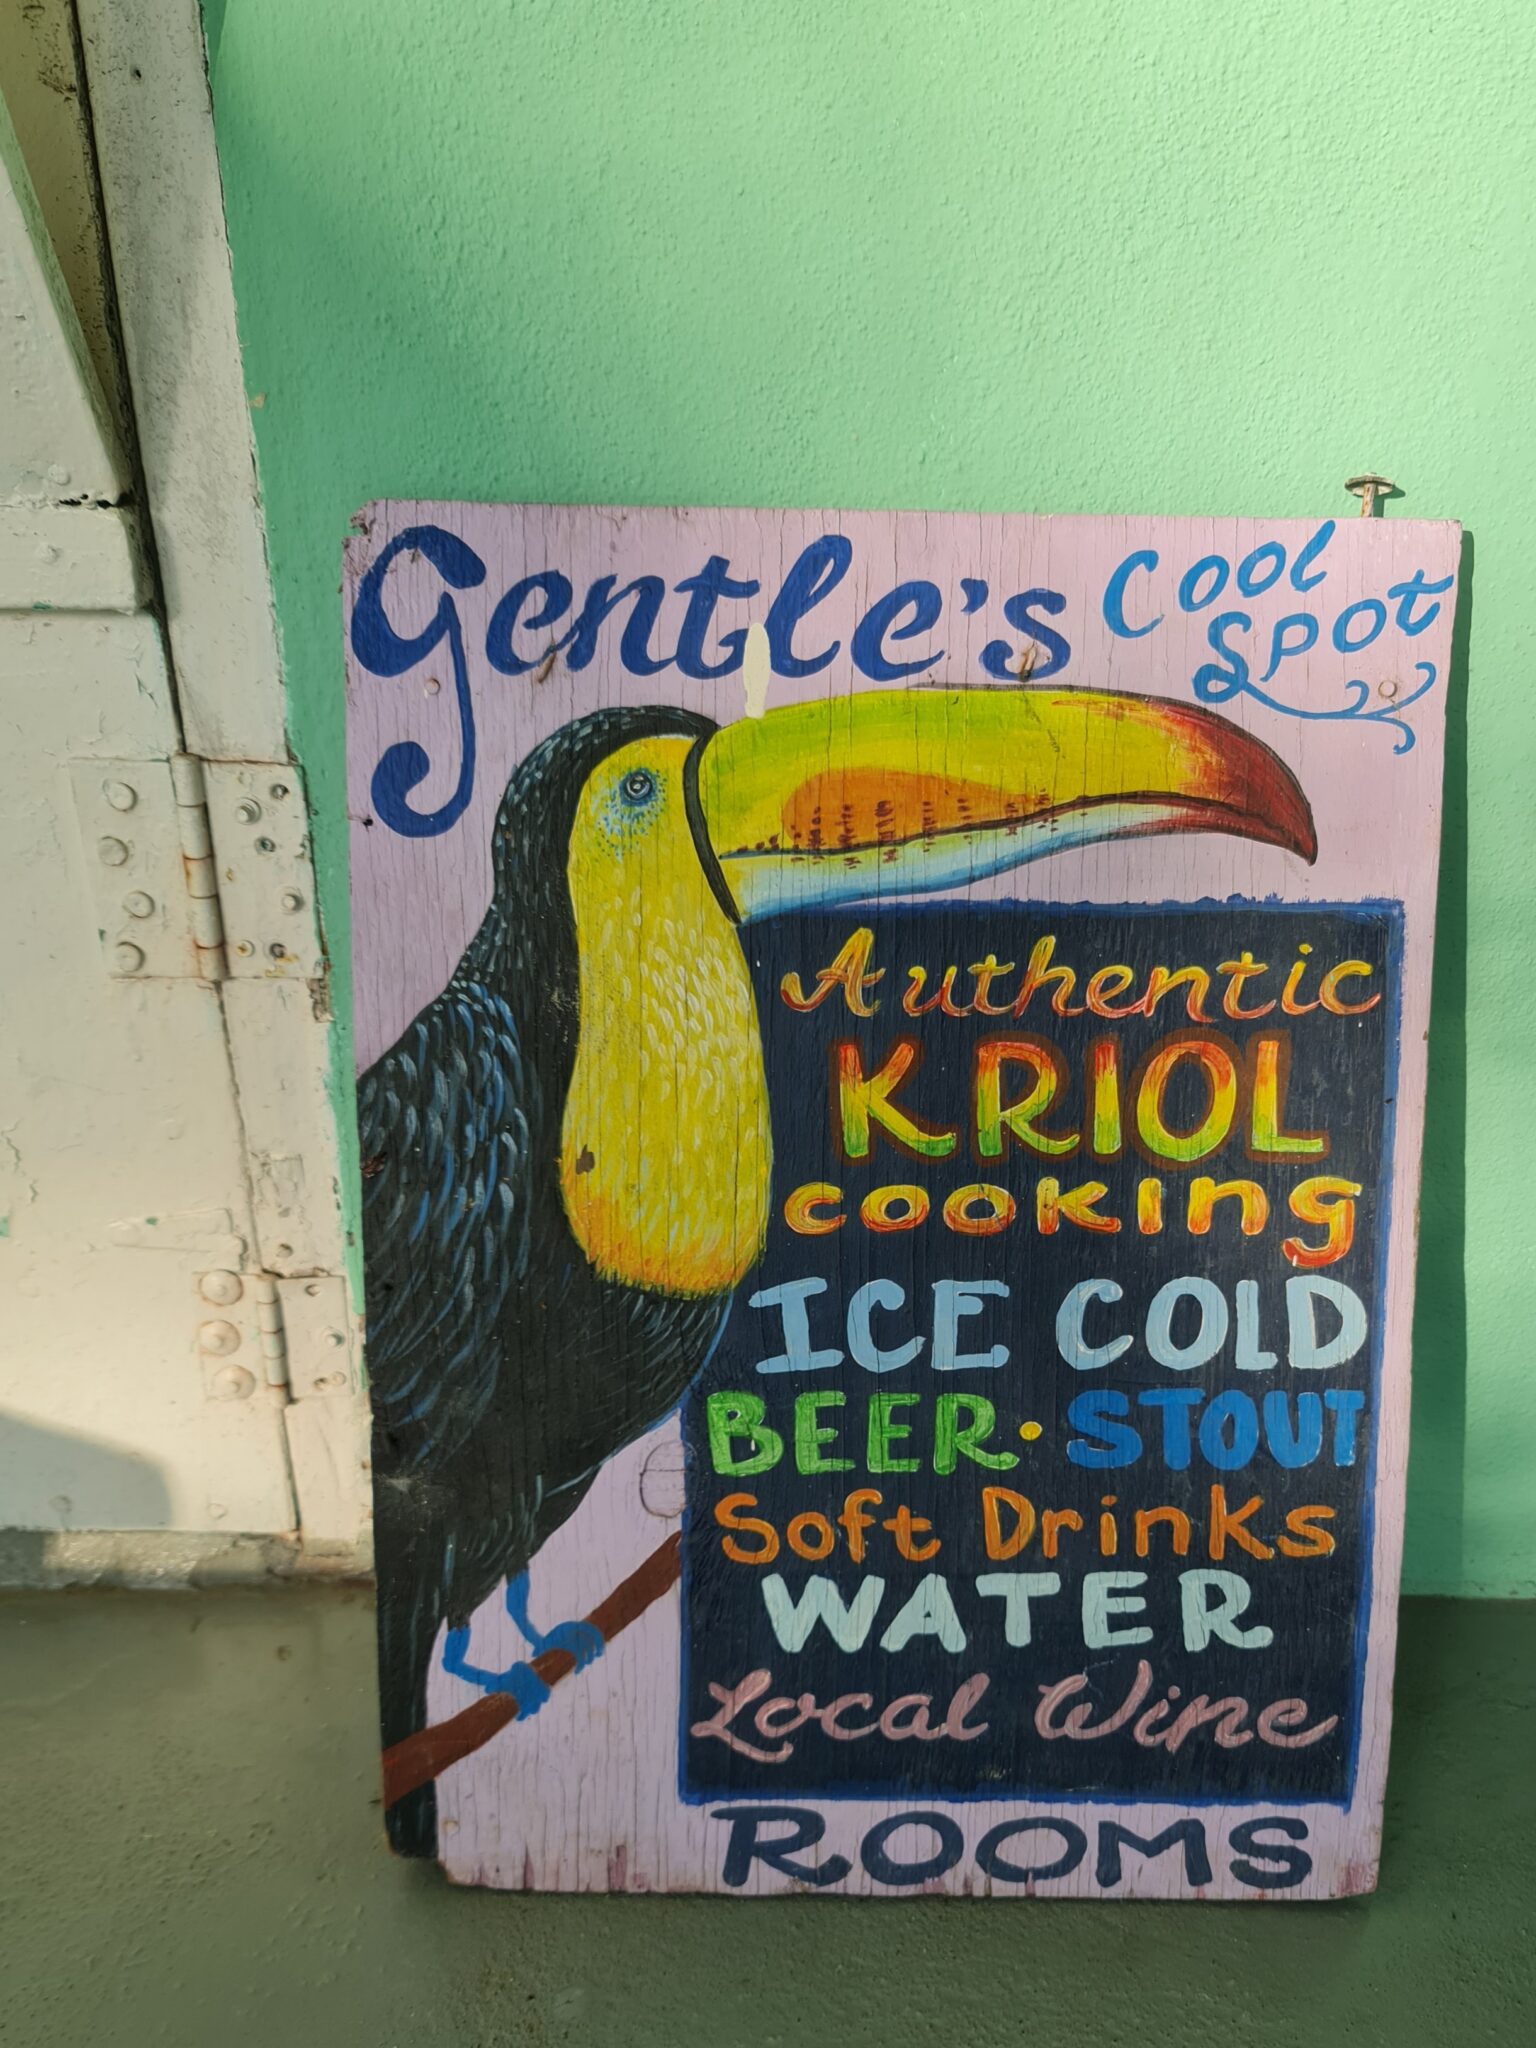 Gentle's Cool
Spot
Authentic
KRIOL
cooking
ICE COLD
BEER · STOUT
Soft Drinks
WATER
Local Wine
ROOMS